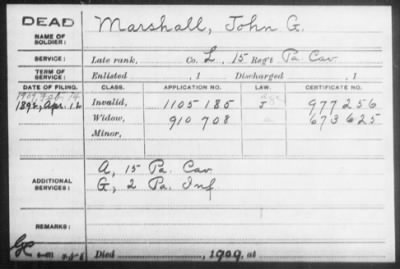 DEAD
NAME OF SOLDIER: Marshall, John G.
SERVICE: Late rank, Co. L, 15 Reg't Pa. Cav.
TERM OF SERVICE: Enlisted , 1 Discharged , 1
DATE OF FILING. CLASS. APPLICATION NO. LAW. CERTIFICATE NO.
1892, Apr. 12 Invalid, 1105185 977256
Widow, 910708 673625
Minor,
ADDITIONAL SERVICES: A, 15 Pa. Cav.
G, 2 Pa. Inf.
REMARKS:
Died , 1909, at